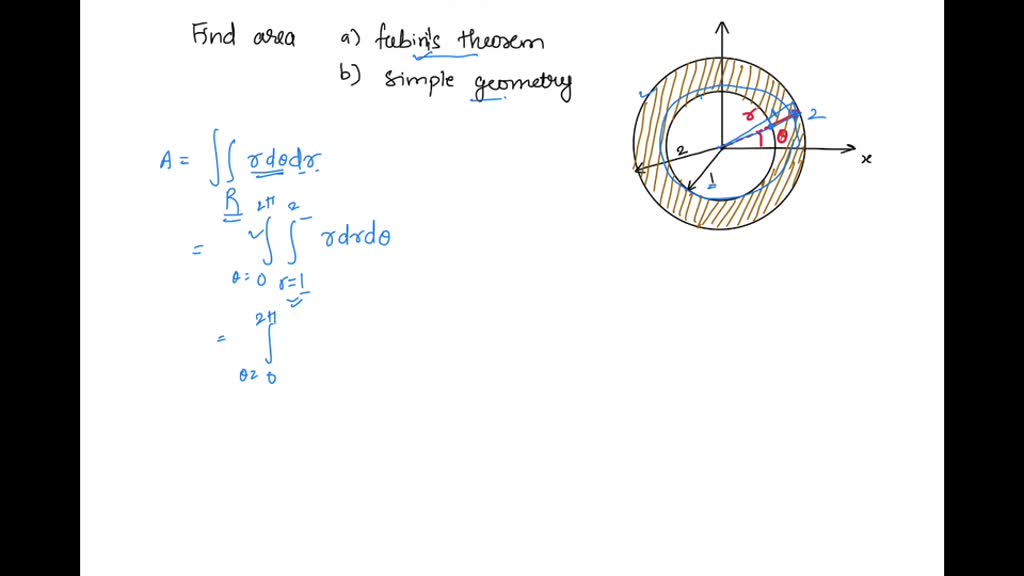 Find area a) fubin's theorem
b) simple geometry
A = ∬ r dθ dr
R
= ∫ 2π θ=0 ∫ 2 r=1 r dr dθ
= ∫ 2π θ= 0
r
2
θ
2
1
x